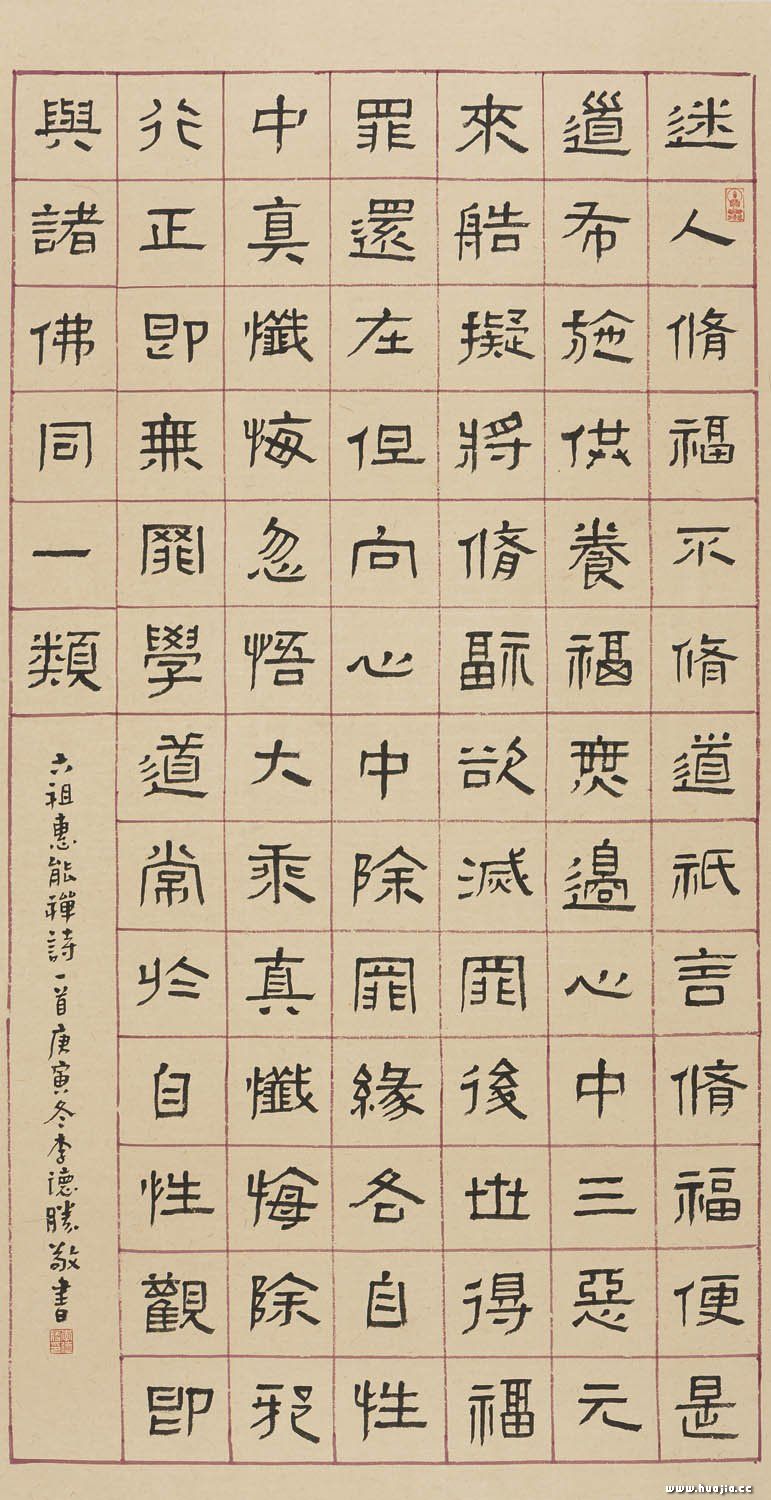 迷人脩福不脩道祇言脩福便是
道布施供養福無邊心中三惡元
來艁擬將脩福欲滅罪後世得福
罪還在但向心中除罪緣各自性
中真懺悔忽悟大乘真懺悔除邪
行正即無罪學道常於自性觀即
與諸佛同一類
六祖惠能禪詩一首庚寅冬李德勝敬書
www.huajia.cc